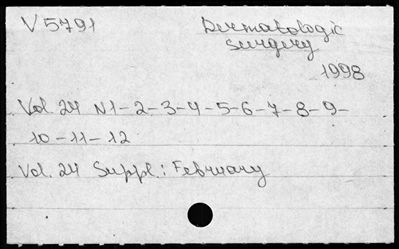 V 5791 Dermatologic
surgery
1998
Vol. 24 N1-2-3-4-5-6-7-8-9-
10-11-12
Vol. 24 Suppl.: February